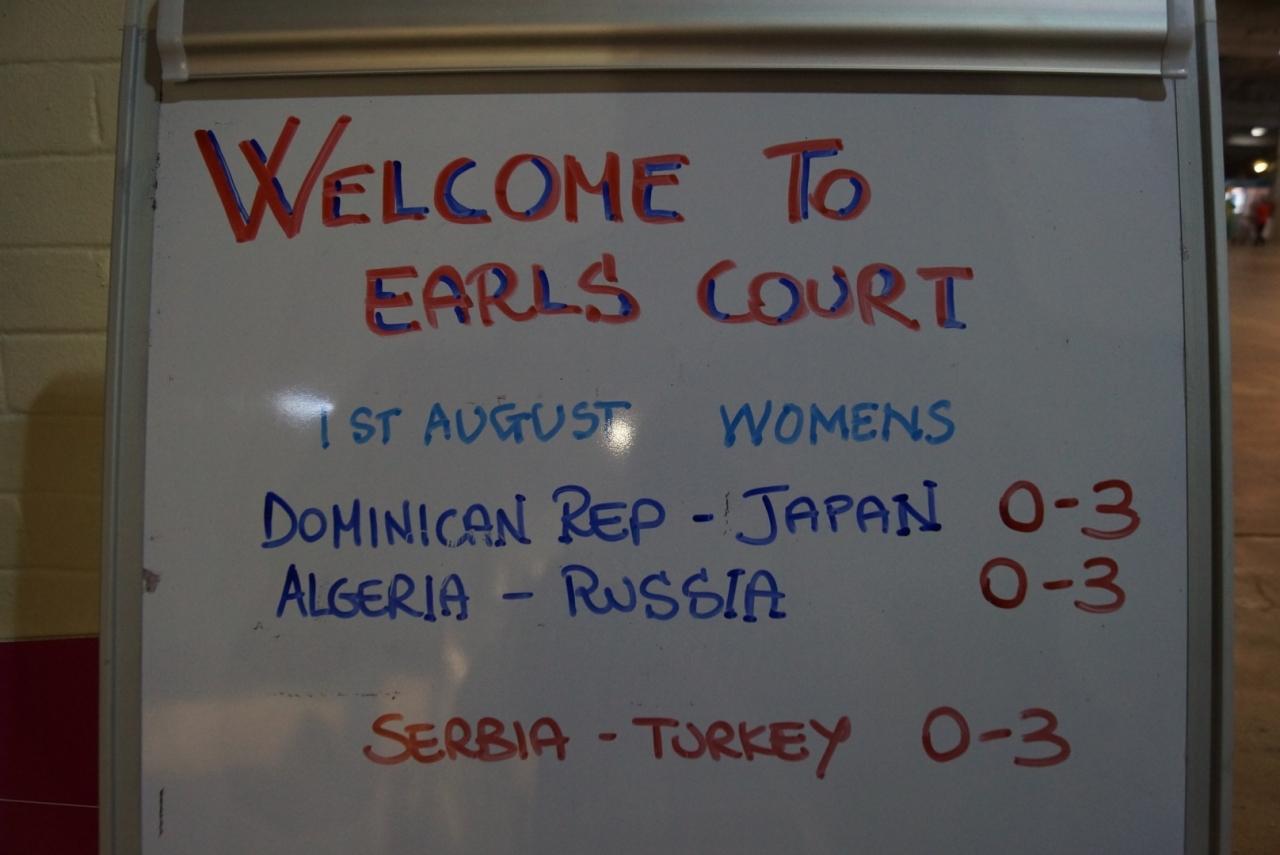 WELCOME TO
EARLS COURT
1ST AUGUST WOMENS
DOMINICAN REP - JAPAN 0-3
ALGERIA - RUSSIA 0-3
SERBIA - TURKEY 0-3